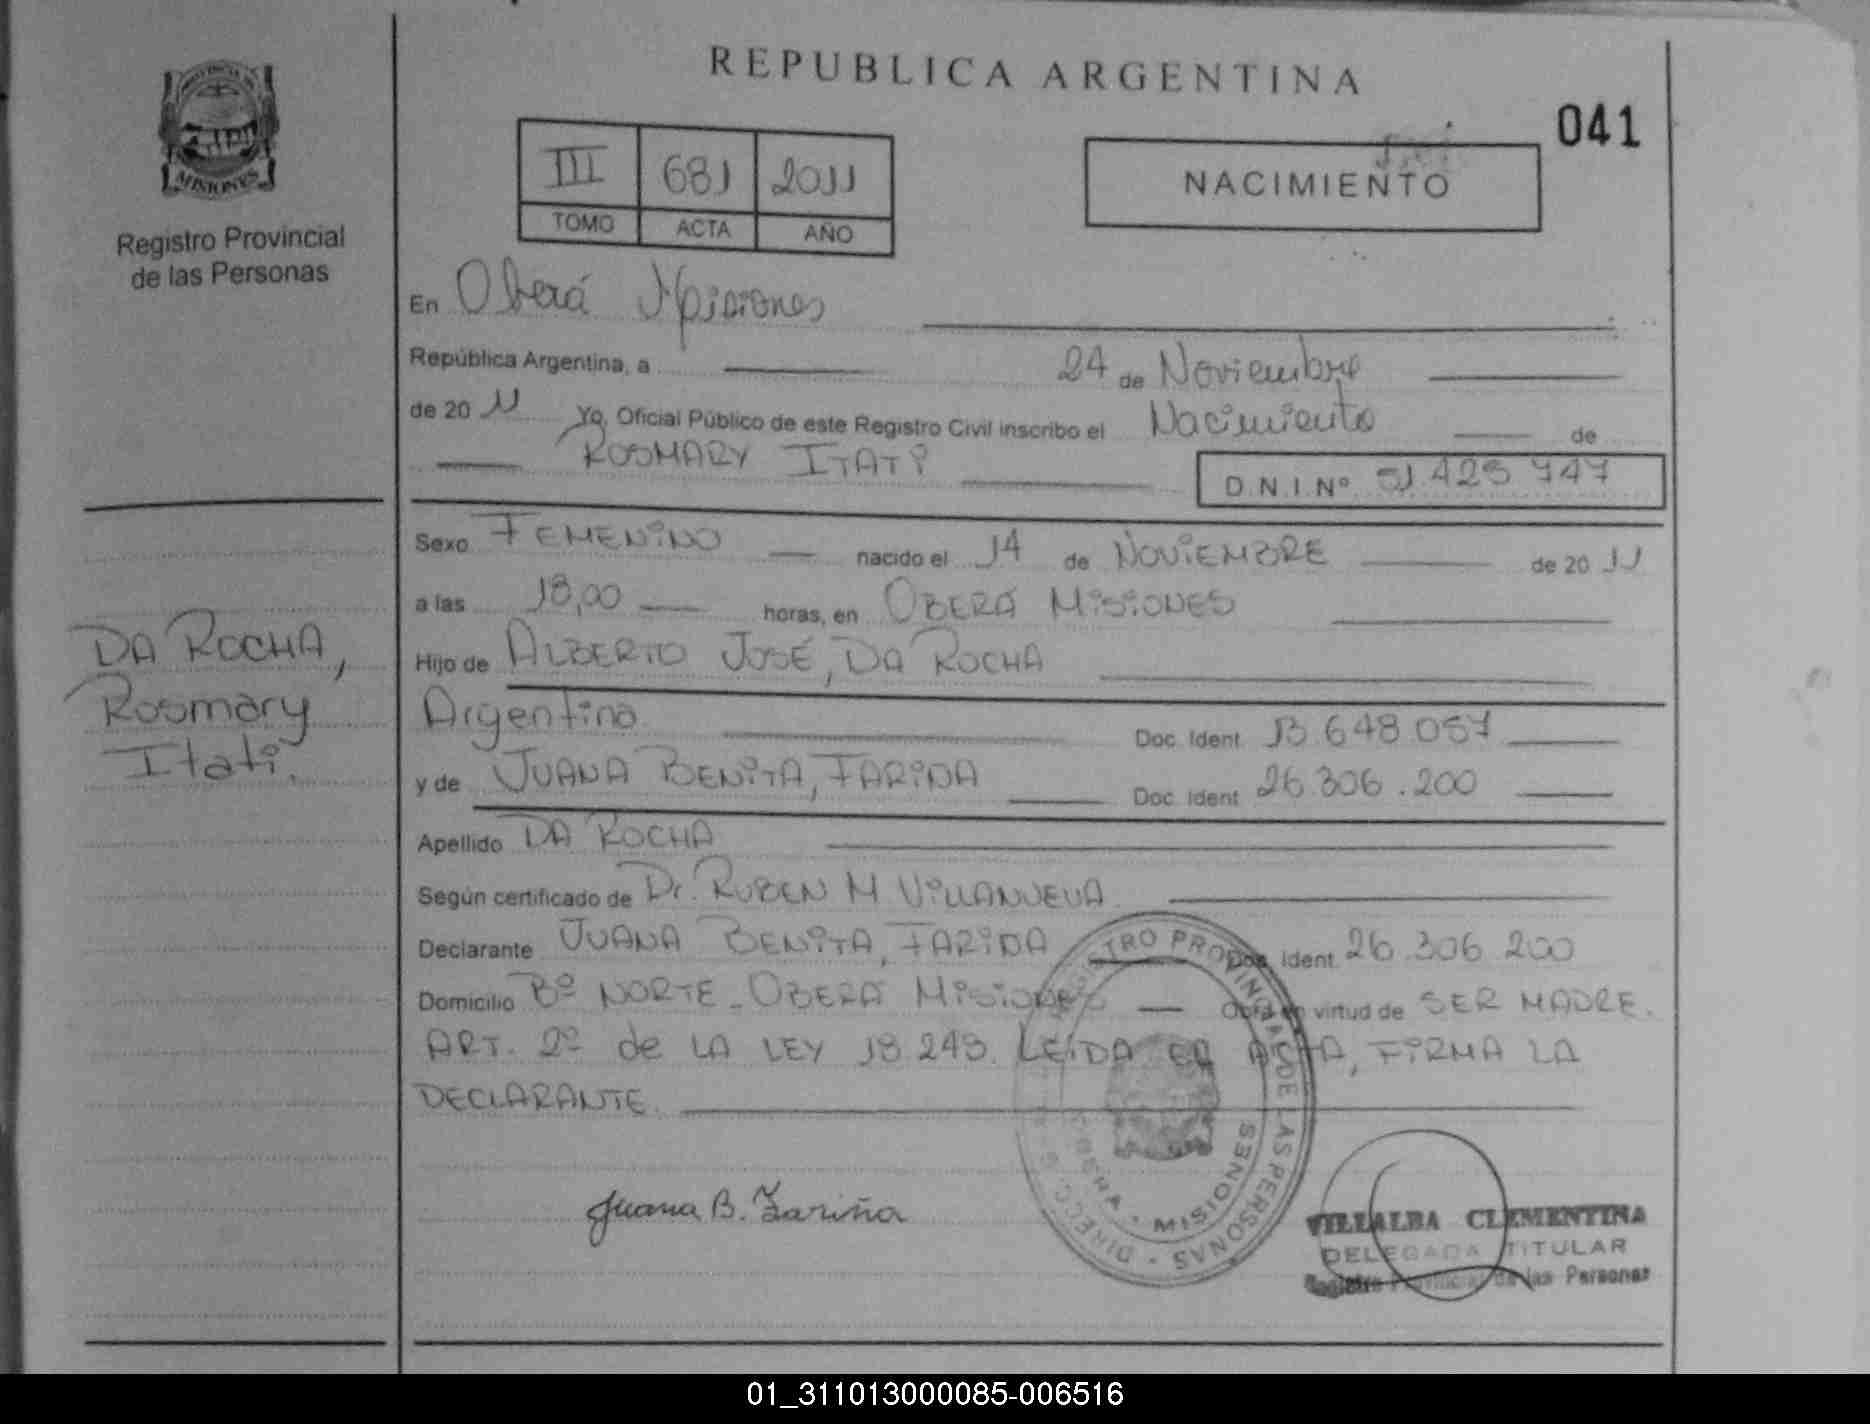 REPUBLICA ARGENTINA
041
III 681 2011
TOMO ACTA AÑO
NACIMIENTO
MISIONES
Registro Provincial
de las Personas
En Oberá Misiones
República Argentina, a 24 de Noviembre
de 20 11 Yo, Oficial Público de este Registro Civil inscribo el Nacimiento de
ROSMARY ITATI
D.N.I.Nº 51.425 747
Sexo FEMENINO nacido el 14 de NOVIEMBRE de 20 11
a las 18,00 horas, en OBERÁ MISIONES
Hijo de ALBERTO JOSÉ, DA ROCHA
Argentino Doc. Ident. 13 648 057
y de JUANA BENITA, FARIÑA Doc. Ident. 26.306.200
Apellido DA ROCHA
Según certificado de Dr. RUBEN M VILLANUEVA
Declarante JUANA BENITA, FARIÑA Doc. Ident. 26.306 200
Domicilio Bº NORTE - OBERÁ MISIONES Obra en virtud de SER MADRE.
ART. 2º de LA LEY 18 248. LEIDA EL ACTA, FIRMA LA
DECLARANTE.
DA ROCHA,
Rosmary
Itatí.
Juana B. Fariña
REGISTRO PROVINCIAL DE LAS PERSONAS - DIRECC.
MISIONES
VILLALBA CLEMENTINA
DELEGADA TITULAR
Registro Provincial de las Personas
01_311013000085-006516